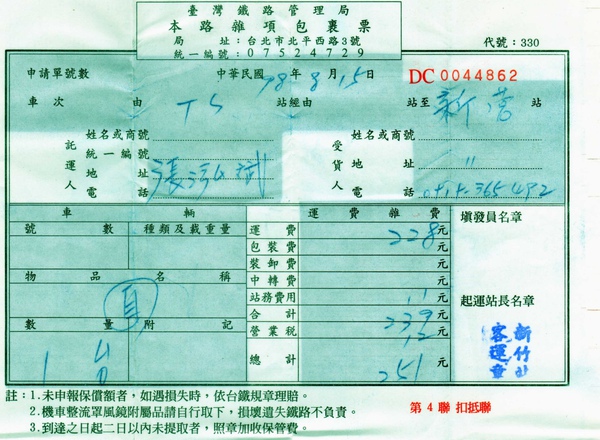 臺灣鐵路管理局
本路雜項包裹票
局 址：台北市北平西路3號
統一編號：07524729
代號：330
申請單號數 中華民國 98 年 8 月 15 日 DC 0044862
車次 由 TS 站經由 站至 新營 站
託運人 姓名或商號 受貨人 姓名或商號
統一編號
地址 張 地址 〃
電話 電話
車輛 運費雜費 填發員名章
號數 種類及載重量 運費 228 元
包裝費 元
裝卸費 元
物品名稱 中轉費 元
站務費用 11 元 起運站長名章
合計 239 元
數量 附記 營業稅 12 元
1 台 總計 251 元
新竹站
客運章
註：1.未申報保償額者，如遇損失時，依台鐵規章理賠。
2.機車整流罩風鏡附屬品請自行取下，損壞遺失鐵路不負責。
3.到達之日起二日以內未提取者，照章加收保管費。
第4聯 扣抵聯